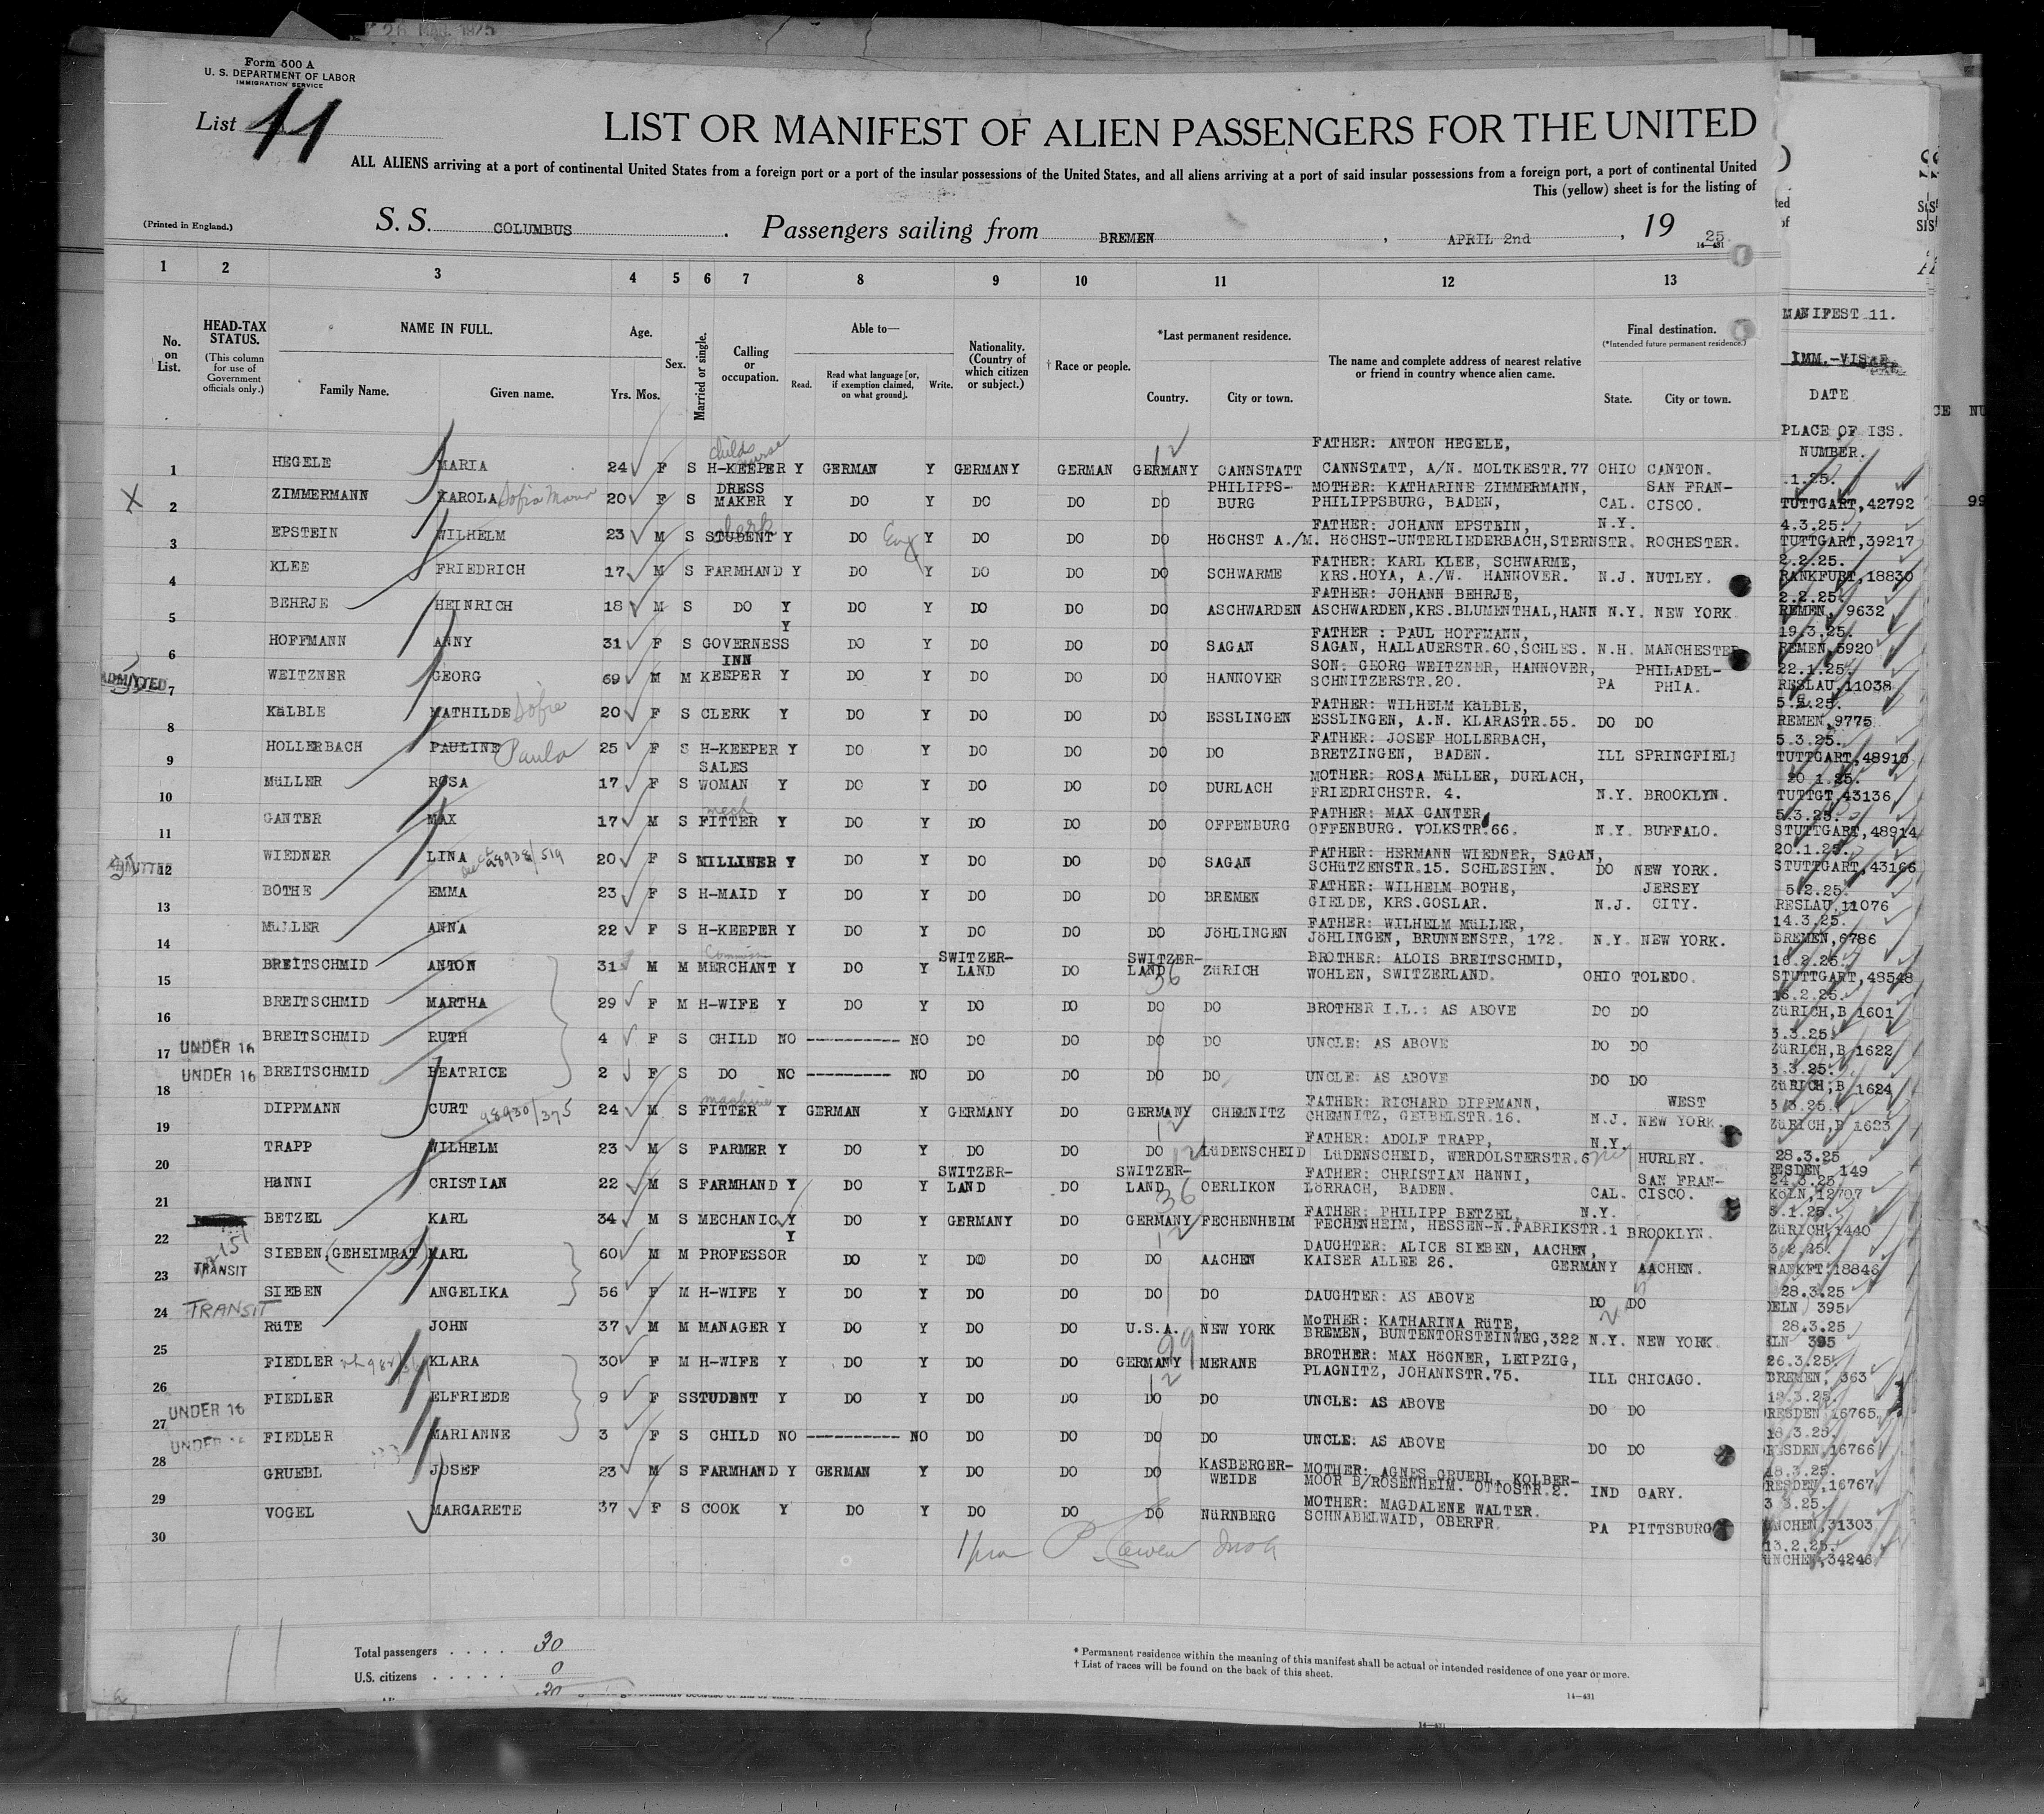 28 MAR. 1925
Form 500 A
U. S. DEPARTMENT OF LABOR
IMMIGRATION SERVICE
List 11
LIST OR MANIFEST OF ALIEN PASSENGERS FOR THE UNITED
ALL ALIENS arriving at a port of continental United States from a foreign port or a port of the insular possessions of the United States, and all aliens arriving at a port of said insular possessions from a foreign port, a port of continental United
This (yellow) sheet is for the listing of
(Printed in England.)
S. S. COLUMBUS. Passengers sailing from BREMEN, APRIL 2nd, 19 25.
14—431
1 2 3 4 5 6 7 8 9 10 11 12 13
No. on List.
HEAD-TAX STATUS.
(This column for use of Government officials only.)
NAME IN FULL.
Family Name. Given name.
Age.
Yrs. Mos.
Sex.
Married or single.
Calling or occupation.
Able to—
Read. Read what language [or, if exemption claimed, on what ground]. Write.
Nationality. (Country of which citizen or subject.)
† Race or people.
*Last permanent residence.
Country. City or town.
The name and complete address of nearest relative or friend in country whence alien came.
Final destination.
(*Intended future permanent residence.)
State. City or town.
MANIFEST 11.
IMM.-VISAE
DATE
PLACE OF ISS.
NUMBER.
1 HEGELE MARIA 24 F S H-KEEPER childs nurse Y GERMAN Y GERMANY GERMAN GERMANY CANNSTATT FATHER: ANTON HEGELE, CANNSTATT, A/N. MOLTKESTR.77 OHIO CANTON.
2 ZIMMERMANN KAROLA Sofia Maria 20 F S DRESS MAKER Y DO Y DO DO DO PHILIPPS-BURG MOTHER: KATHARINE ZIMMERMANN, PHILIPPSBURG, BADEN, CAL. SAN FRAN-CISCO.
3 EPSTEIN WILHELM 23 M S STUDENT clerk Y DO Eng Y DO DO DO HöCHST A./M. FATHER: JOHANN EPSTEIN, HöCHST-UNTERLIEDERBACH,STERNSTR. N.Y. ROCHESTER.
4 KLEE FRIEDRICH 17 M S FARMHAND Y DO Y DO DO DO SCHWARME FATHER: KARL KLEE, SCHWARME, KRS.HOYA, A./W. HANNOVER. N.J. NUTLEY.
5 BEHRJE HEINRICH 18 M S DO Y DO Y DO DO DO ASCHWARDEN FATHER: JOHANN BEHRJE, ASCHWARDEN,KRS.BLUMENTHAL,HANN N.Y. NEW YORK
6 HOFFMANN ANNY 31 F S GOVERNESS Y DO Y DO DO DO SAGAN FATHER : PAUL HOFFMANN, SAGAN, HALLAUERSTR.60,SCHLES. N.H. MANCHESTER
ADMITTED 7 WEITZNER GEORG 69 M M INN KEEPER Y DO Y DO DO DO HANNOVER SON: GEORG WEITZNER, HANNOVER, SCHNITZERSTR.20. PA PHILADEL-PHIA.
8 KäLBLE MATHILDE Sofie 20 F S CLERK Y DO Y DO DO DO ESSLINGEN FATHER: WILHELM KäLBLE, ESSLINGEN, A.N. KLARASTR.55. DO DO
9 HOLLERBACH PAULINE Paula 25 F S H-KEEPER Y DO Y DO DO DO DO FATHER: JOSEF HOLLERBACH, BRETZINGEN, BADEN. ILL SPRINGFIEL
10 MüLLER ROSA 17 F S SALES WOMAN Y DO Y DO DO DO DURLACH MOTHER: ROSA MüLLER, DURLACH, FRIEDRICHSTR. 4. N.Y. BROOKLYN.
11 GANTER MAX 17 M S FITTER mech Y DO Y DO DO DO OFFENBURG FATHER: MAX GANTER, OFFENBURG. VOLKSTR.66. N.Y. BUFFALO.
12 WIEDNER LINA 20 F S MILLINER Y DO Y DO DO DO SAGAN FATHER: HERMANN WIEDNER, SAGAN, SCHüTZENSTR.15. SCHLESIEN. DO NEW YORK.
13 BOTHE EMMA 23 F S H-MAID Y DO Y DO DO DO BREMEN FATHER: WILHELM BOTHE, GIELDE, KRS.GOSLAR. N.J. JERSEY CITY.
14 MüLLER ANNA 22 F S H-KEEPER Y DO Y DO DO DO JöHLINGEN FATHER: WILHELM MüLLER, JöHLINGEN, BRUNNENSTR, 172. N.Y. NEW YORK.
15 BREITSCHMID ANTON 31 M M MERCHANT Y DO Y SWITZER-LAND DO SWITZER-LAND 36 ZüRICH BROTHER: ALOIS BREITSCHMID, WOHLEN, SWITZERLAND. OHIO TOLEDO.
16 BREITSCHMID MARTHA 29 F M H-WIFE Y DO Y DO DO DO DO BROTHER I.L.: AS ABOVE DO DO
17 UNDER 16 BREITSCHMID RUTH 4 F S CHILD NO ---------- NO DO DO DO DO UNCLE: AS ABOVE DO DO
18 UNDER 16 BREITSCHMID BEATRICE 2 F S DO NO --------- NO DO DO DO DO UNCLE: AS ABOVE DO DO
19 DIPPMANN CURT 98930/375 24 M S FITTER machine Y GERMAN Y GERMANY DO GERMANY 12 CHEMNITZ FATHER: RICHARD DIPPMANN, CHEMNITZ, GEIBELSTR.16. N.J. WEST NEW YORK.
20 TRAPP WILHELM 23 M S FARMER Y DO Y DO DO DO 12 LüDENSCHEID FATHER: ADOLF TRAPP, LüDENSCHEID, WERDOLSTERSTR.6 N.Y. HURLEY.
21 HäNNI CRISTIAN 22 M S FARMHAND Y DO Y SWITZER-LAND DO SWITZER-LAND 36 OERLIKON FATHER: CHRISTIAN HäNNI, LöRRACH, BADEN. CAL. SAN FRAN-CISCO.
22 BETZEL KARL 34 M S MECHANIC Y DO Y GERMANY DO GERMANY 12 FECHENHEIM FATHER: PHILIPP BETZEL, FECHENHEIM, HESSEN-N.FABRIKSTR.1 N.Y. BROOKLYN.
23 TRANSIT SIEBEN,(GEHEIMRAT) KARL 60 M M PROFESSOR Y DO Y DO DO DO AACHEN DAUGHTER: ALICE SIEBEN, AACHEN, KAISER ALLEE 26. GERMANY AACHEN.
24 TRANSIT SIEBEN ANGELIKA 56 F M H-WIFE Y DO Y DO DO DO DO DAUGHTER: AS ABOVE DO DO
25 RüTE JOHN 37 M M MANAGER Y DO Y DO DO U.S.A. 99 NEW YORK MOTHER: KATHARINA RüTE, BREMEN, BUNTENTORSTEINWEG,322 N.Y. NEW YORK.
26 FIEDLER KLARA 30 F M H-WIFE Y DO Y DO DO GERMANY 12 MERANE BROTHER: MAX HöGNER, LEIPZIG, PLAGNITZ, JOHANNSTR.75. ILL CHICAGO.
27 UNDER 16 FIEDLER ELFRIEDE 9 F S STUDENT Y DO Y DO DO DO DO UNCLE: AS ABOVE DO DO
28 UNDER 16 FIEDLER MARIANNE 3 F S CHILD NO ---------- NO DO DO DO DO UNCLE: AS ABOVE DO DO
29 GRUEBL JOSEF 23 M S FARMHAND Y GERMAN Y DO DO DO KASBERGER-WEIDE MOTHER: AGNES GRUEBL, KOLBER-MOOR B/ROSENHEIM. OTTOSTR.2. IND GARY.
30 VOGEL MARGARETE 37 F S COOK Y DO Y DO DO DO NüRNBERG MOTHER: MAGDALENE WALTER. SCHNABELWAID, OBERFR. PA PITTSBURG
.1.25.
TUTTGART,42792
4.3.25.
TUTTGART,39217
2.2.25.
RANKFURT,18830
2.2.25.
REMEN, 9632
19.3.25.
REMEN,5920
22.1.25.
RESLAU,11038
5.2.25.
REMEN,9775
5.3.25.
TUTTGART,48910
20.1.25.
TUTTGT,43136
5.3.25.
STUTTGART,48914
20.1.25.
STUTTGART,43166
5.2.25.
RESLAU,11076
14.3.25.
BREMEN,6786
16.2.25.
STUTTGART,48548
16.2.25.
ZüRICH,B 1601
3.3.25.
ZüRICH,B 1622
3.3.25.
ZüRICH,B 1624
3.3.25.
ZüRICH,B 1623
28.3.25
ESDEN 149
24.3.25
KöLN,12707
5.1.25.
ZüRICH,1440
3.2.25.
RANKFT.18846
28.3.25
OELN 395
28.3.25
ELN 395
26.3.25.
BREMEN, 363
18.3.25.
DRESDEN,16765
18.3.25.
DRESDEN,16766
18.3.25.
DRESDEN,16767
3 3.25.
NCHEN,31303
13.2.25.
üNCHEN,34246
Total passengers . . . . 30
U.S. citizens . . . . . 0
30
* Permanent residence within the meaning of this manifest shall be actual or intended residence of one year or more.
† List of races will be found on the back of this sheet.
14—431
14—431